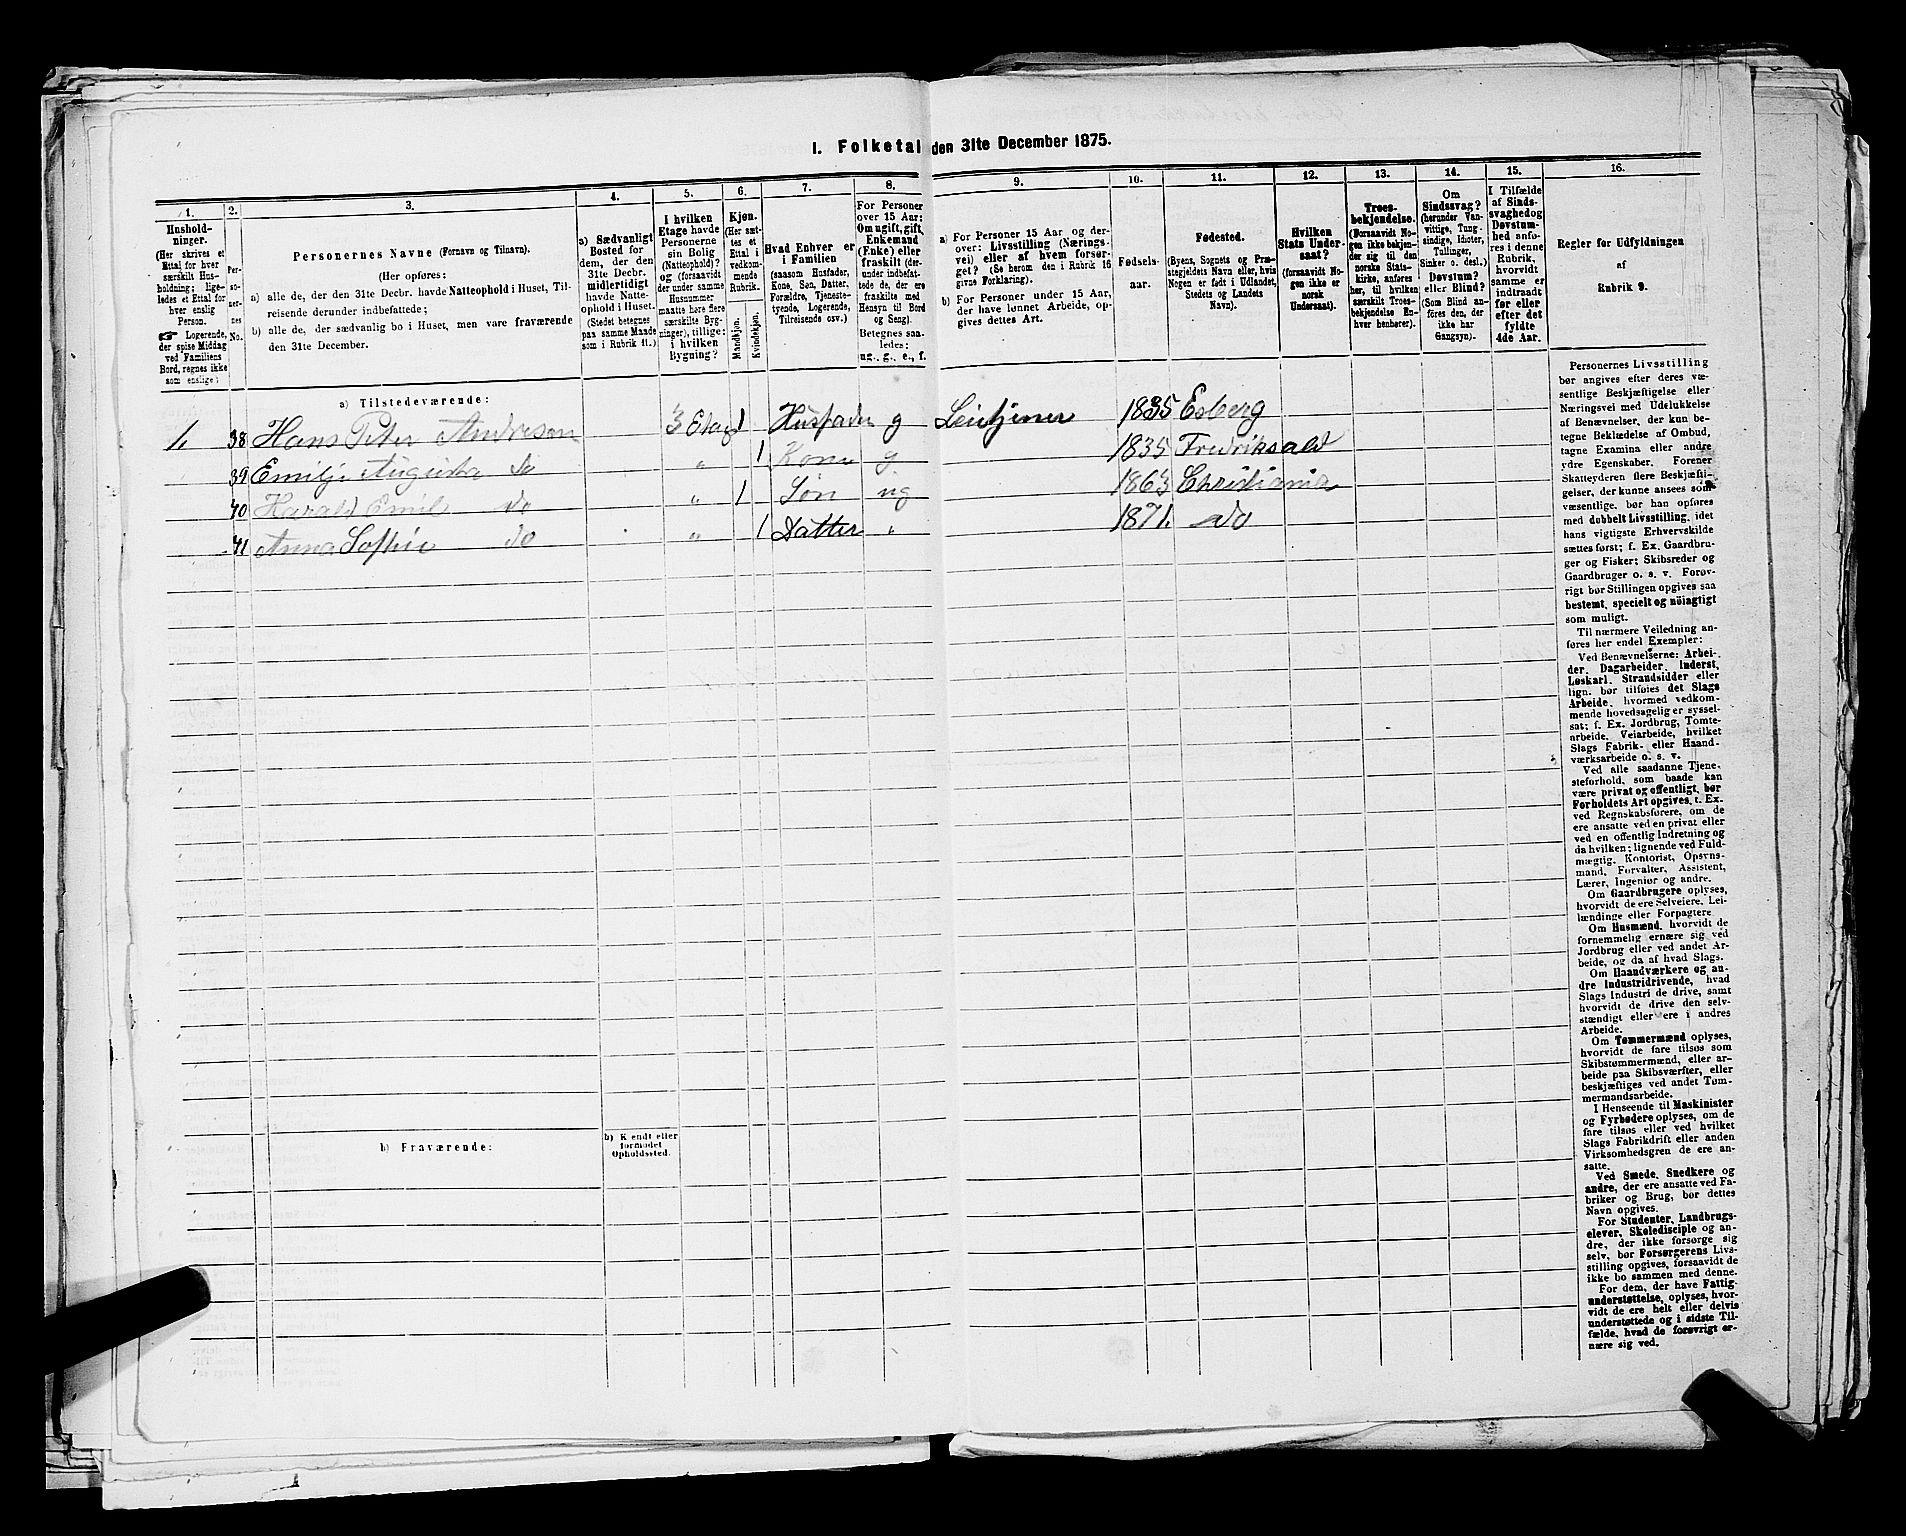 I. Folketal den 31te December 1875.
1. 2. 3. 4. 5. 6. 7. 8. 9. 10. 11. 12. 13. 14. 15. 16.
Hushold-
ninger.
(Her skrives et
Ettal for hver
særskilt Hus-
holdning; lige-
ledes et Ettal for
hver enslig
Person.
☛ Logerende,
der spise Middag
ved Familiens
Bord, regnes ikke
som enslige)
Per-
so-
ner-
nes
No.
Personernes Navne (Fornavn og Tilnavn).
(Her opføres:
a) alle de, der den 31te Decbr. havde Natteophold i Huset, Til-
reisende derunder indbefattede;
b) alle de, der sædvanlig bo i Huset, men vare fraværende
den 31te December.
a) Sædvanligt
Bosted for
dem, der den
31te Decbr.
midlertidigt
havde Natte-
ophold i Huset.
(Stedet betegnes
paa samme Maade
som i Rubrik 11.)
I hvilken
Etage havde
Personerne
sin Bolig
(Natteophold)?
og (forsaavidt
der under samme
Husnummer
maatte høre flere
særskilte Byg-
ninger), tillige:
i hvilken
Bygning?
Kjøn.
(Her sæt-
tes et
Ettal i
vedkom-
mende
Rubrik.
Mandkjøn.
Kvindekjøn.
Hvad Enhver er
i Familien
(saasom Husfader,
Kone, Søn, Datter,
Forældre, Tjeneste-
tyende, Logerende,
Tilreisende osv.)
For Personer
over 15 Aar:
Om ugift, gift,
Enkemand
(Enke) eller
fraskilt (der-
under indbefat-
tede de, der ere
fraskilte med
Hensyn til Bord
og Seng).
Betegnes saa-
ledes:
ug., g., e., f.
a) For Personer 15 Aar og der-
over: Livsstilling (Nærings-
vei) eller af hvem forsør-
get? (Se herom den i Rubrik 16
givne Forklaring).
b) For Personer under 15 Aar,
der have lønnet Arbeide, op-
gives dettes Art.
Fødsels-
aar.
Fødested.
(Byens, Sognets og Præ-
stegjeldets Navn eller, hvis
Nogen er født i Udlandet,
Stedets og Landets
Navn).
Hvilken
Stats Under-
saat?
(forsaavidt No-
gen ikke er
norsk
Undersaat).
Troes-
bekjendelse.
(Forsaavidt No-
gen ikke bekjen-
der sig til den
norske Stats-
kirke, anføres
her, til hvilken
særskilt Troes-
bekjendelse En-
hver henhører).
Om
Sindssvag?
(herunder Van-
vittige, Tung-
sindige, Idioter,
Tullinger,
Sinker o. desl.)
Døvstum?
eller Blind?
(Som Blind an-
føres den, der
ikke har
Gangsyn).
I Tilfælde
af Sinds-
svaghed og
Døvstum-
hed anfø-
res i denne
Rubrik,
hvorvidt
samme er
indtraadt
før eller
efter det
fyldte
4de Aar.
Regler før Udfyldningen
af
Rubrik 9.
a) Tilstedeværende:
1. 38 Hans Peter Andresen 3 Etag 1 Husfader g 1835 Esberg
39 Emilje Augusta do „ 1 Kone g 1835 Fredriksald
40 Harald Emil do „ 1 Søn ug 1863 Christiania
41 Anna Sophie do „ 1 Datter „ 1871. do
b) Fraværende:
b) Kjendt eller
formodet
Opholdssted.
Personernes Livsstilling
bør angives efter deres væ-
sentlige Beskjæftigelse eller
Næringsvei med Udelukkelse
af Benævnelser, der kun be-
tegne Beklædelse af Ombud,
tagne Examina eller andre
ydre Egenskaber. Forener
Skatteyderen flere Beskjæfti-
gelser, der kunne ansees som
væsentlige, bør han opføres
med dobbelt Livsstilling, idet
hans vigtigste Erhvervskilde
sættes først; f. Ex. Gaardbru-
ger og Fisker; Skibsreder og
Gaardbruger o. s. v. Forøv-
rigt bør Stillingen opgives saa
bestemt, specielt og nøiagtigt
som muligt.
Til nærmere Veiledning an-
føres her endel Exempler:
Ved Benævnelserne: Arbei-
der, Dagarbeider, Inderst,
Løskarl, Strandsidder eller
lign. bør tilføies det Slags
Arbeide, hvormed vedkom-
mende hovedsagelig er syssel-
sat; f. Ex. Jordbrug, Tomte-
arbeide, Veiarbeide, hvilket
Slags Fabrik- eller Haand-
værksarbeide o. s. v.
Ved alle saadanne Tjene-
steforhold, som baade kan
være privat og offentligt, bør
Forholdets Art opgives, t. Ex.
ved Regnskabsførere, om de
ere ansatte ved en privat eller
ved en offentlig Indretning og
da hvilken; lignende ved Fuld-
mægtig, Kontorist, Opsyns-
mand, Forvalter, Assistent,
Lærer, Ingeniør og andre.
Om Gaardbrugere oplyses,
hvorvidt de ere Selveiere, Lei-
lændinge eller Forpagtere
Om Husmænd, hvorvidt de
fornemmelig ernære sig ved
Jordbrug eller ved andet Ar-
beide, og da af hvad Slags.
Om Haandværkere og an-
dre Industridrivende, hvad
Slags Industri de drive, samt
hvorvidt de drive den selv-
stændigt eller ere i andres
Arbeide.
Om Tømmermænd oplyses,
hvorvidt de fare tilsøs som
Skibstømmermænd, eller ar-
beide paa Skibsværfter, eller
beskjæftiges ved andet Tøm-
mermandsarbeide.
I Henseende til Maskinister
og Fyrbødere oplyses, om de
fare tilsøs eller ved hvilket
Slags Fabrikdrift eller anden
Virksomhedsgren de ere an-
satte.
Ved Smede, Snedkere og
andre, der ere ansatte ved Fa-
briker og Brug, bør dettes
Navn opgives.
For Studenter, Landbrugs-
elever, Skoledisciple og an-
dre, der ikke forsørge sig
selv, bør Forsørgerens Livs-
stilling opgives, forsaavidt de
ikke bo sammen med denne.
For dem, der have Fattig-
understøttelse, oplyses, hvor-
vidt de ere helt eller delvis
understøttede og i sidste Til-
fælde, hvad de forøvrigt er-
nære sig ved.